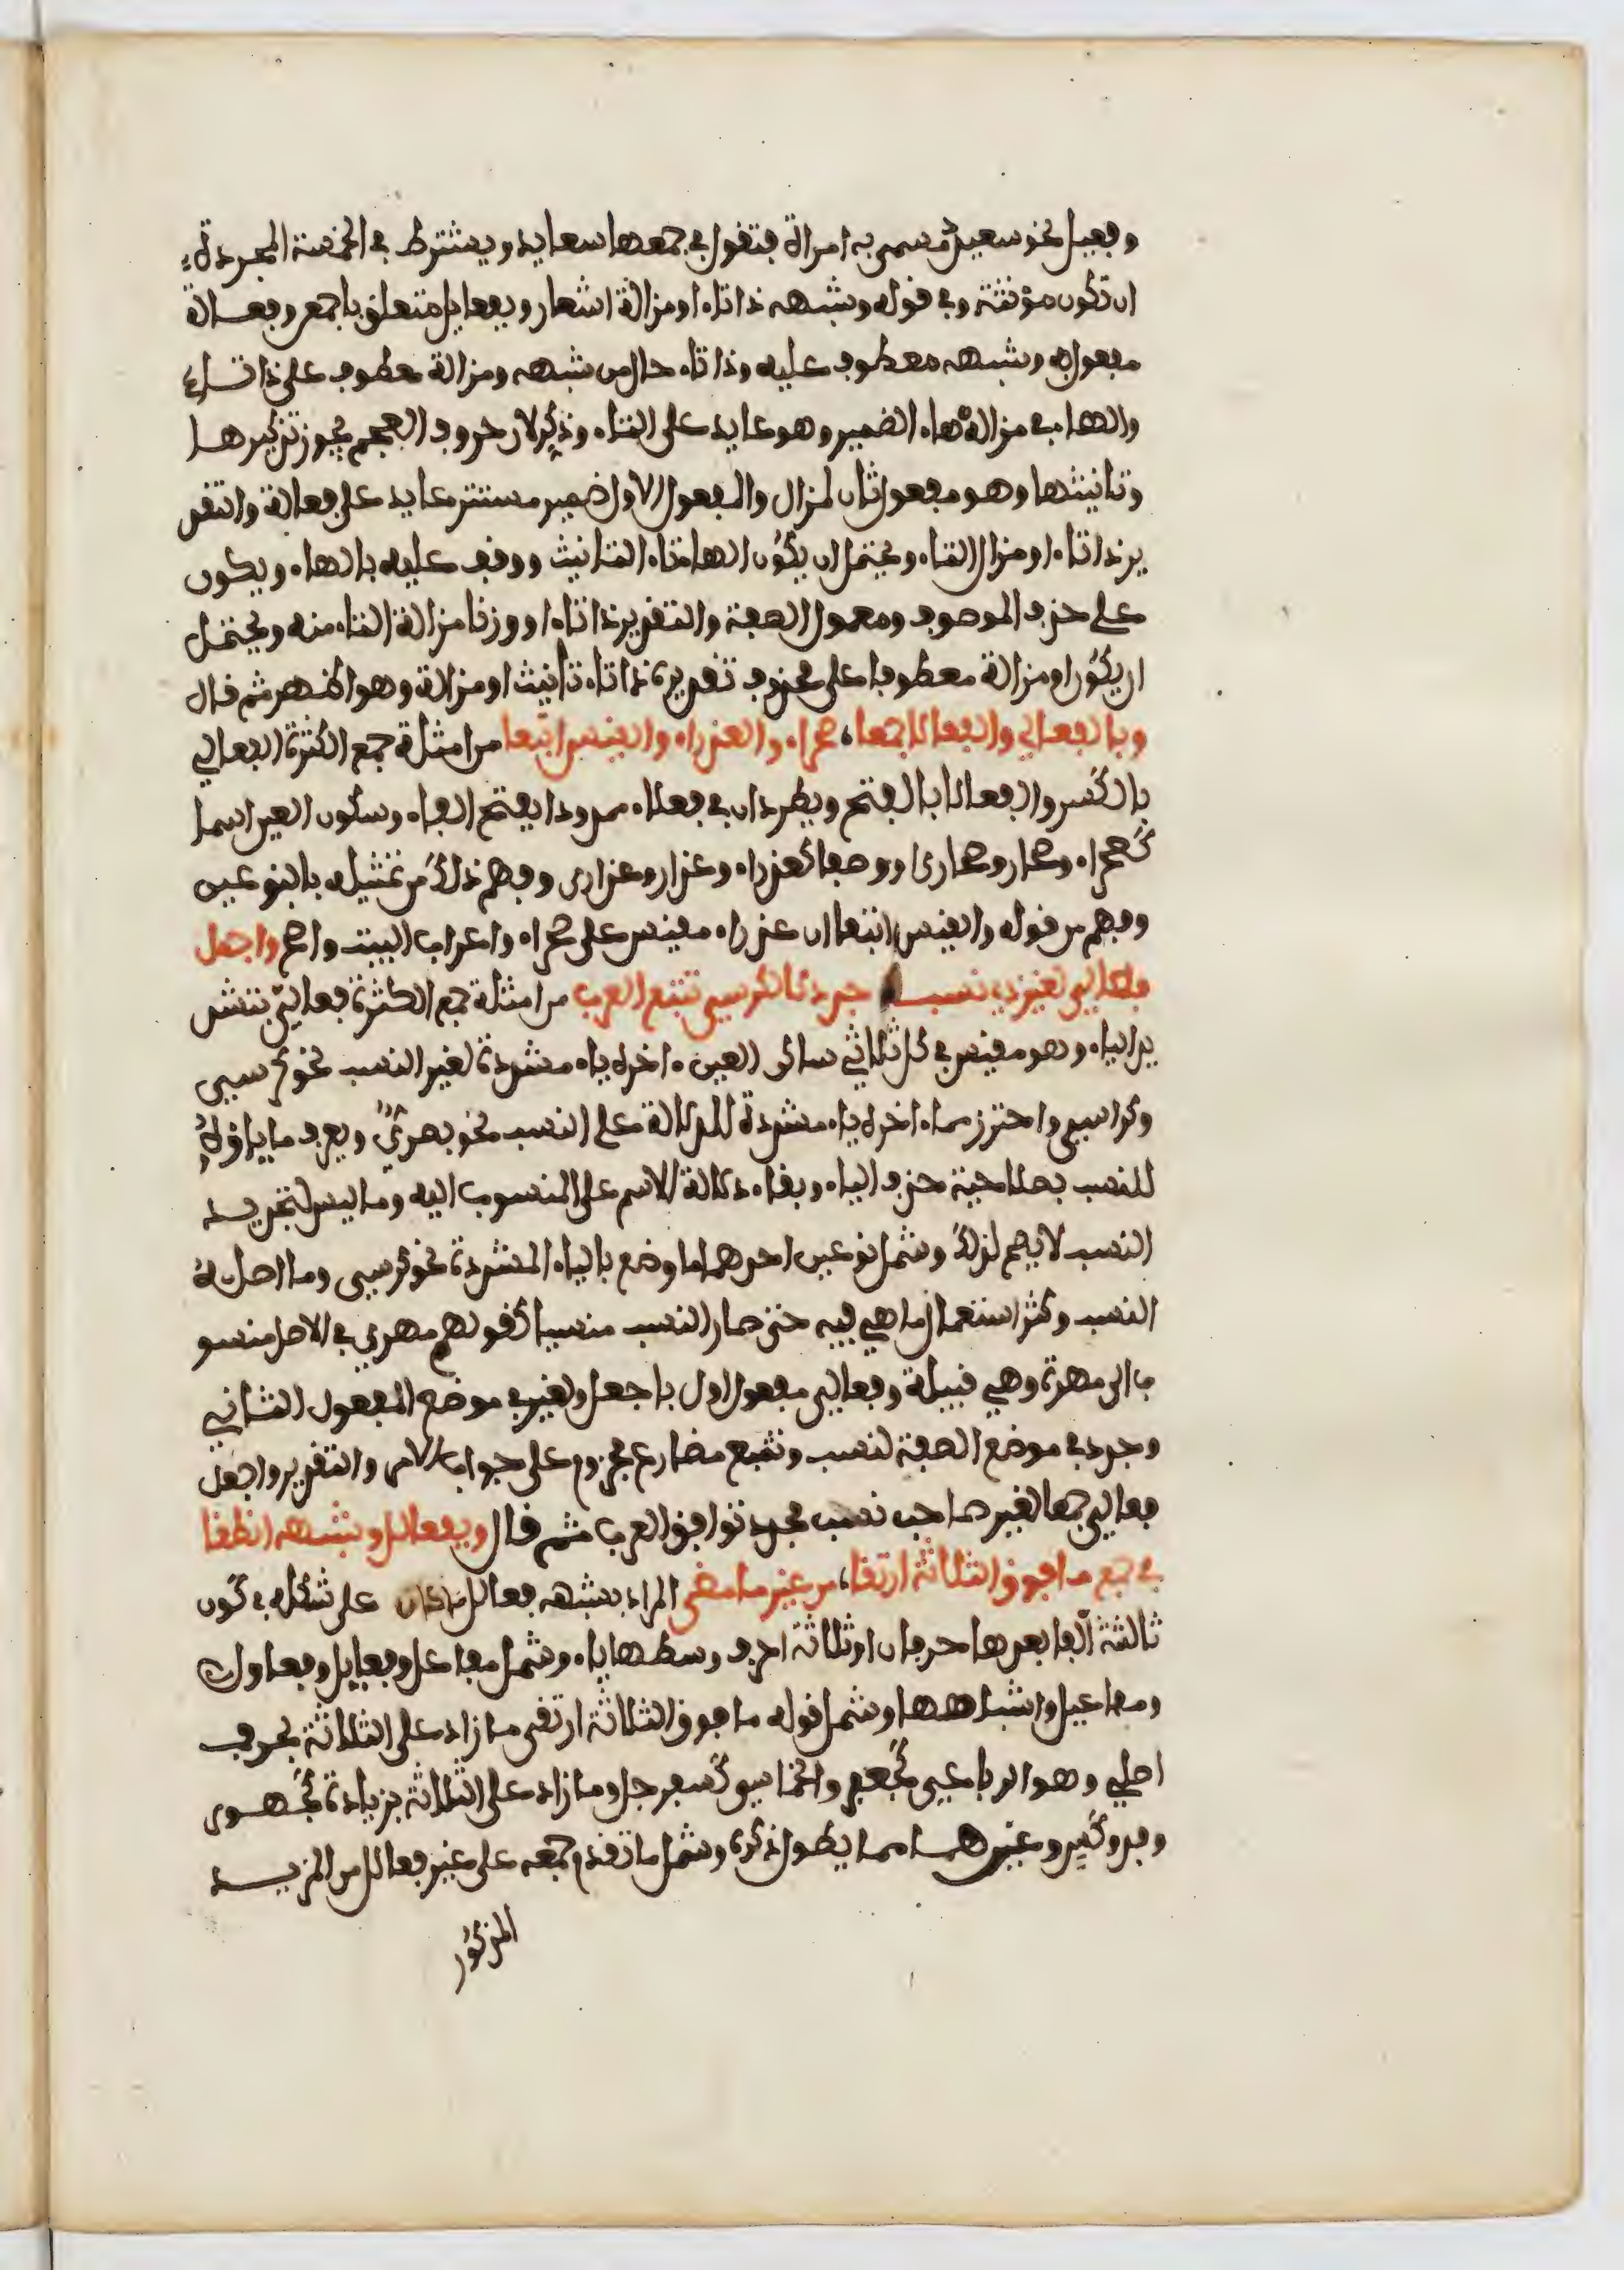 وفعيل نحو سعيد مسمى به امراة فتقول في جمعها سعايد ويشترط في الخمسة المجردة
ان تكون مؤنثة وفي قوله وشبهه ذا تاء او مزالة اشعار وبفعايل متعلق باجمع وفعالة
مفعول به وشبهه معطوف عليه وذا تاء حال من شبهه ومزالة معطوف على ذا تاء
والهاء في مزاله هاء الضمير وهو عايد على التاء وذكر لان حروف المعجم يجوز تذكيرها
وتانيثها وهو مفعول ثان لمزال والمفعول الاول ضمير مستتر عايد على فعالة والتقد
ير ذا تاء او مزال التاء ويحتمل ان يكون الهاء تاء التانيث ووقف عليه بالهاء ويكون
على حذف الموصوف ومعمول الصفة والتقدير ذا تاء او وزنا مزالة التاء منه ويحتمل
ان يكون او مزالة معطوفا على محذوف تقديره ذا تاء تانيث او مزالة وهو اظهر ثم قال
وبالفعالي والفعالا جمعا، صحراء والعذراء والقيس اتبعا من امثلة جمع الكثرة الفعالي
بالكسر والفعالا بالفتح ويطردان في فعلاء ممدودا بفتح الفاء وسكون العين اسما
كصحراء وصحار وصحارى او وصفا كعذراء وعذار وعذارى وفهم ذلك من تمثيله بالنوعين
وفهم من قوله والقيس اتبعا ان عذراء مقيس على صحراء واعراب البيت واضح واجعل
فعالي لغير ذي نسب جدد كالكرسي تتبع العرب من امثلة جمع الكثرة فعالي بتشد
يد الياء وهو مقيس في كل ثلاثي ساكن العين اخره ياء مشددة لغير النسب نحو كرسي
وكراسي واحترز مما اخره ياء مشددة للدلالة على النسب نحو بصري ويعرف ما ياؤه
للنسب بصلاحية حذف الياء وبقاء دلالة الاسم على المنسوب اليه وما ليس لتجديد
النسب لا يصح لذلك وشمل نوعين احدهما ما وضع بالياء المشددة نحو كرسي وما اصله
النسب وكثر استعمال ما هي فيه حتى صار النسب منسيا كقولهم مهري في الاصل منسو
ب الى مهرة وهي قبيلة وفعالي مفعول اول باجعل ولغير في موضع المفعول الثاني
وجدد في موضع الصفة لنسب وتتبع مضارع مجزوم على جواب الامر والتقدير واجعل
فعالي جمعا لغير صاحب نسب مجدد توافق العرب ثم قال وبفعالل وشبهه انطقا
في جمع ما فوق الثلاثة ارتقا، من غير ما مضى المراد بشبهه فعالل ما كان على شكله في كون
ثالثه الفا بعدها حرفان او ثلاثة احرف وسطها ياء وشمل مفاعل وفعايل وفعاول
ومفاعيل واشباهها وشمل قوله ما فوق الثلاثة ارتقى ما زاد على الثلاثة بحرف
اصلي وهو الرباعي كجعفر والخماسي كسفرجل وما زاد على الثلاثة بزيادة كجهوى
وفدوكس وغيرهما مما يطول ذكره وشمل ما تقدم جمعه على غير فعالل من المزيد
المذكور